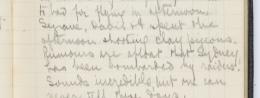 to bed for flying in afternoon.
Syrane, David & I spent the
afternoon shooting clay pigeons.
Rumours are afloat that Sydney
has been bombarded by raiders.
Sounds incredible but one can
never tell these days.